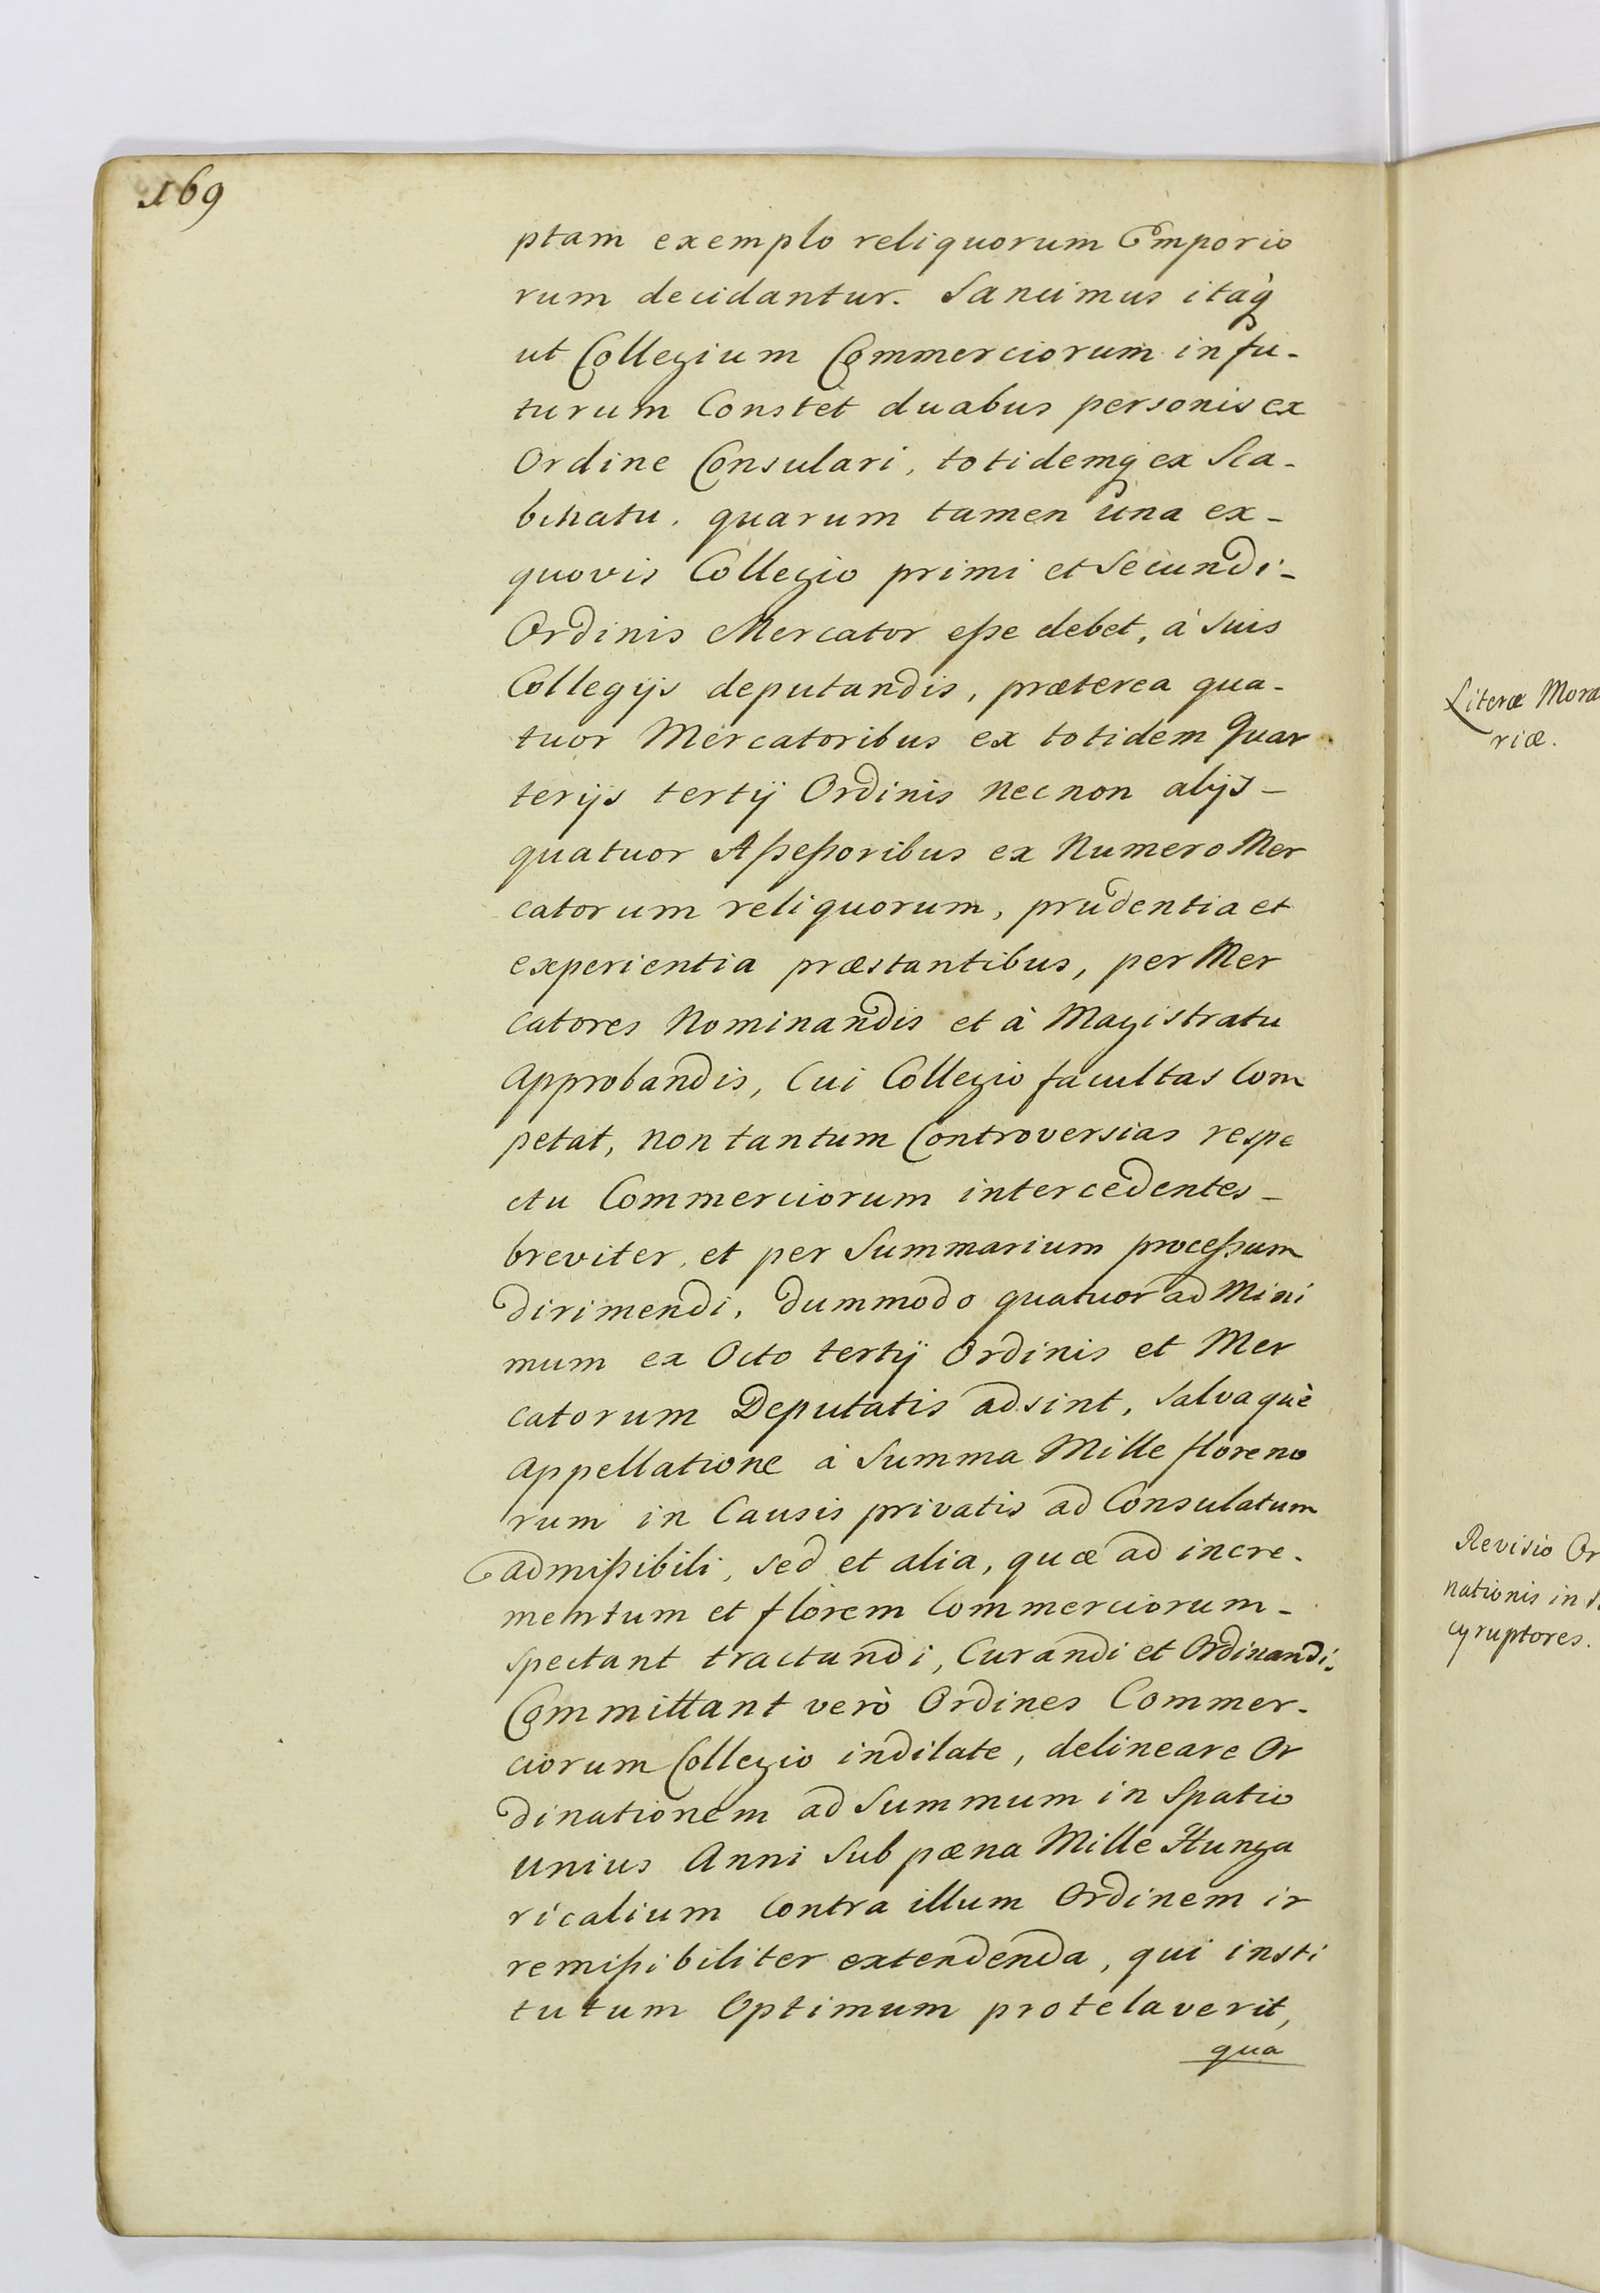 169
ptam exemplo reliquorum Emporio
rum decidantur. Sancimus itaq́
ut Collegium Commerciorum in fu-
turum Constet duabus personis ex
Ordine Consulari, totidemq́ ex Sca-
binatu, quarum tamen una ex-
quovis Collegio primi et Secundi-
Ordinis Mercator eſse debet, à suis
Collegijs deputandis, præterea qua-
tuor Mercatoribus ex totidem Quar
terijs tertij Ordinis nec non alijs-
quatuor Aſseſsoribus ex Numero Mer
catorum reliquorum, prudentia et
experientia præstantibus, per Mer
catores Nominandis et à Magistratu
Approbandis, Cui Collegio facultas Com
petat, non tantum Controversias respe
ctu Commerciorum intercedentes-
breviter, et per Summarium proceſsum
dirimendi, dummodo quatuor ad Mini
mum ex Octo tertij Ordinis et Mer
catorum Deputatis adsint, salvaquè
Appellatione à Summa Mille floreno
rum in Causis privatis ad Consulatum
admiſsibili, sed et alia, quæ ad incre-
mentum et florem Commerciorum-
spectant tractandi, Curandi et Ordinandi.
Committant verò Ordines Commer-
ciorum Collegio indilate, delineare Or
dinationem ad Summum in Spatio
unius Anni Sub pæna Mille Hunga
ricalium Contra illum Ordinem ir
remiſsibiliter extendenda, qui insti
tutum Optimum protelaverit,
qua
Literæ Mora
riæ.
Revisio Or
nationis in d
cyruptores.